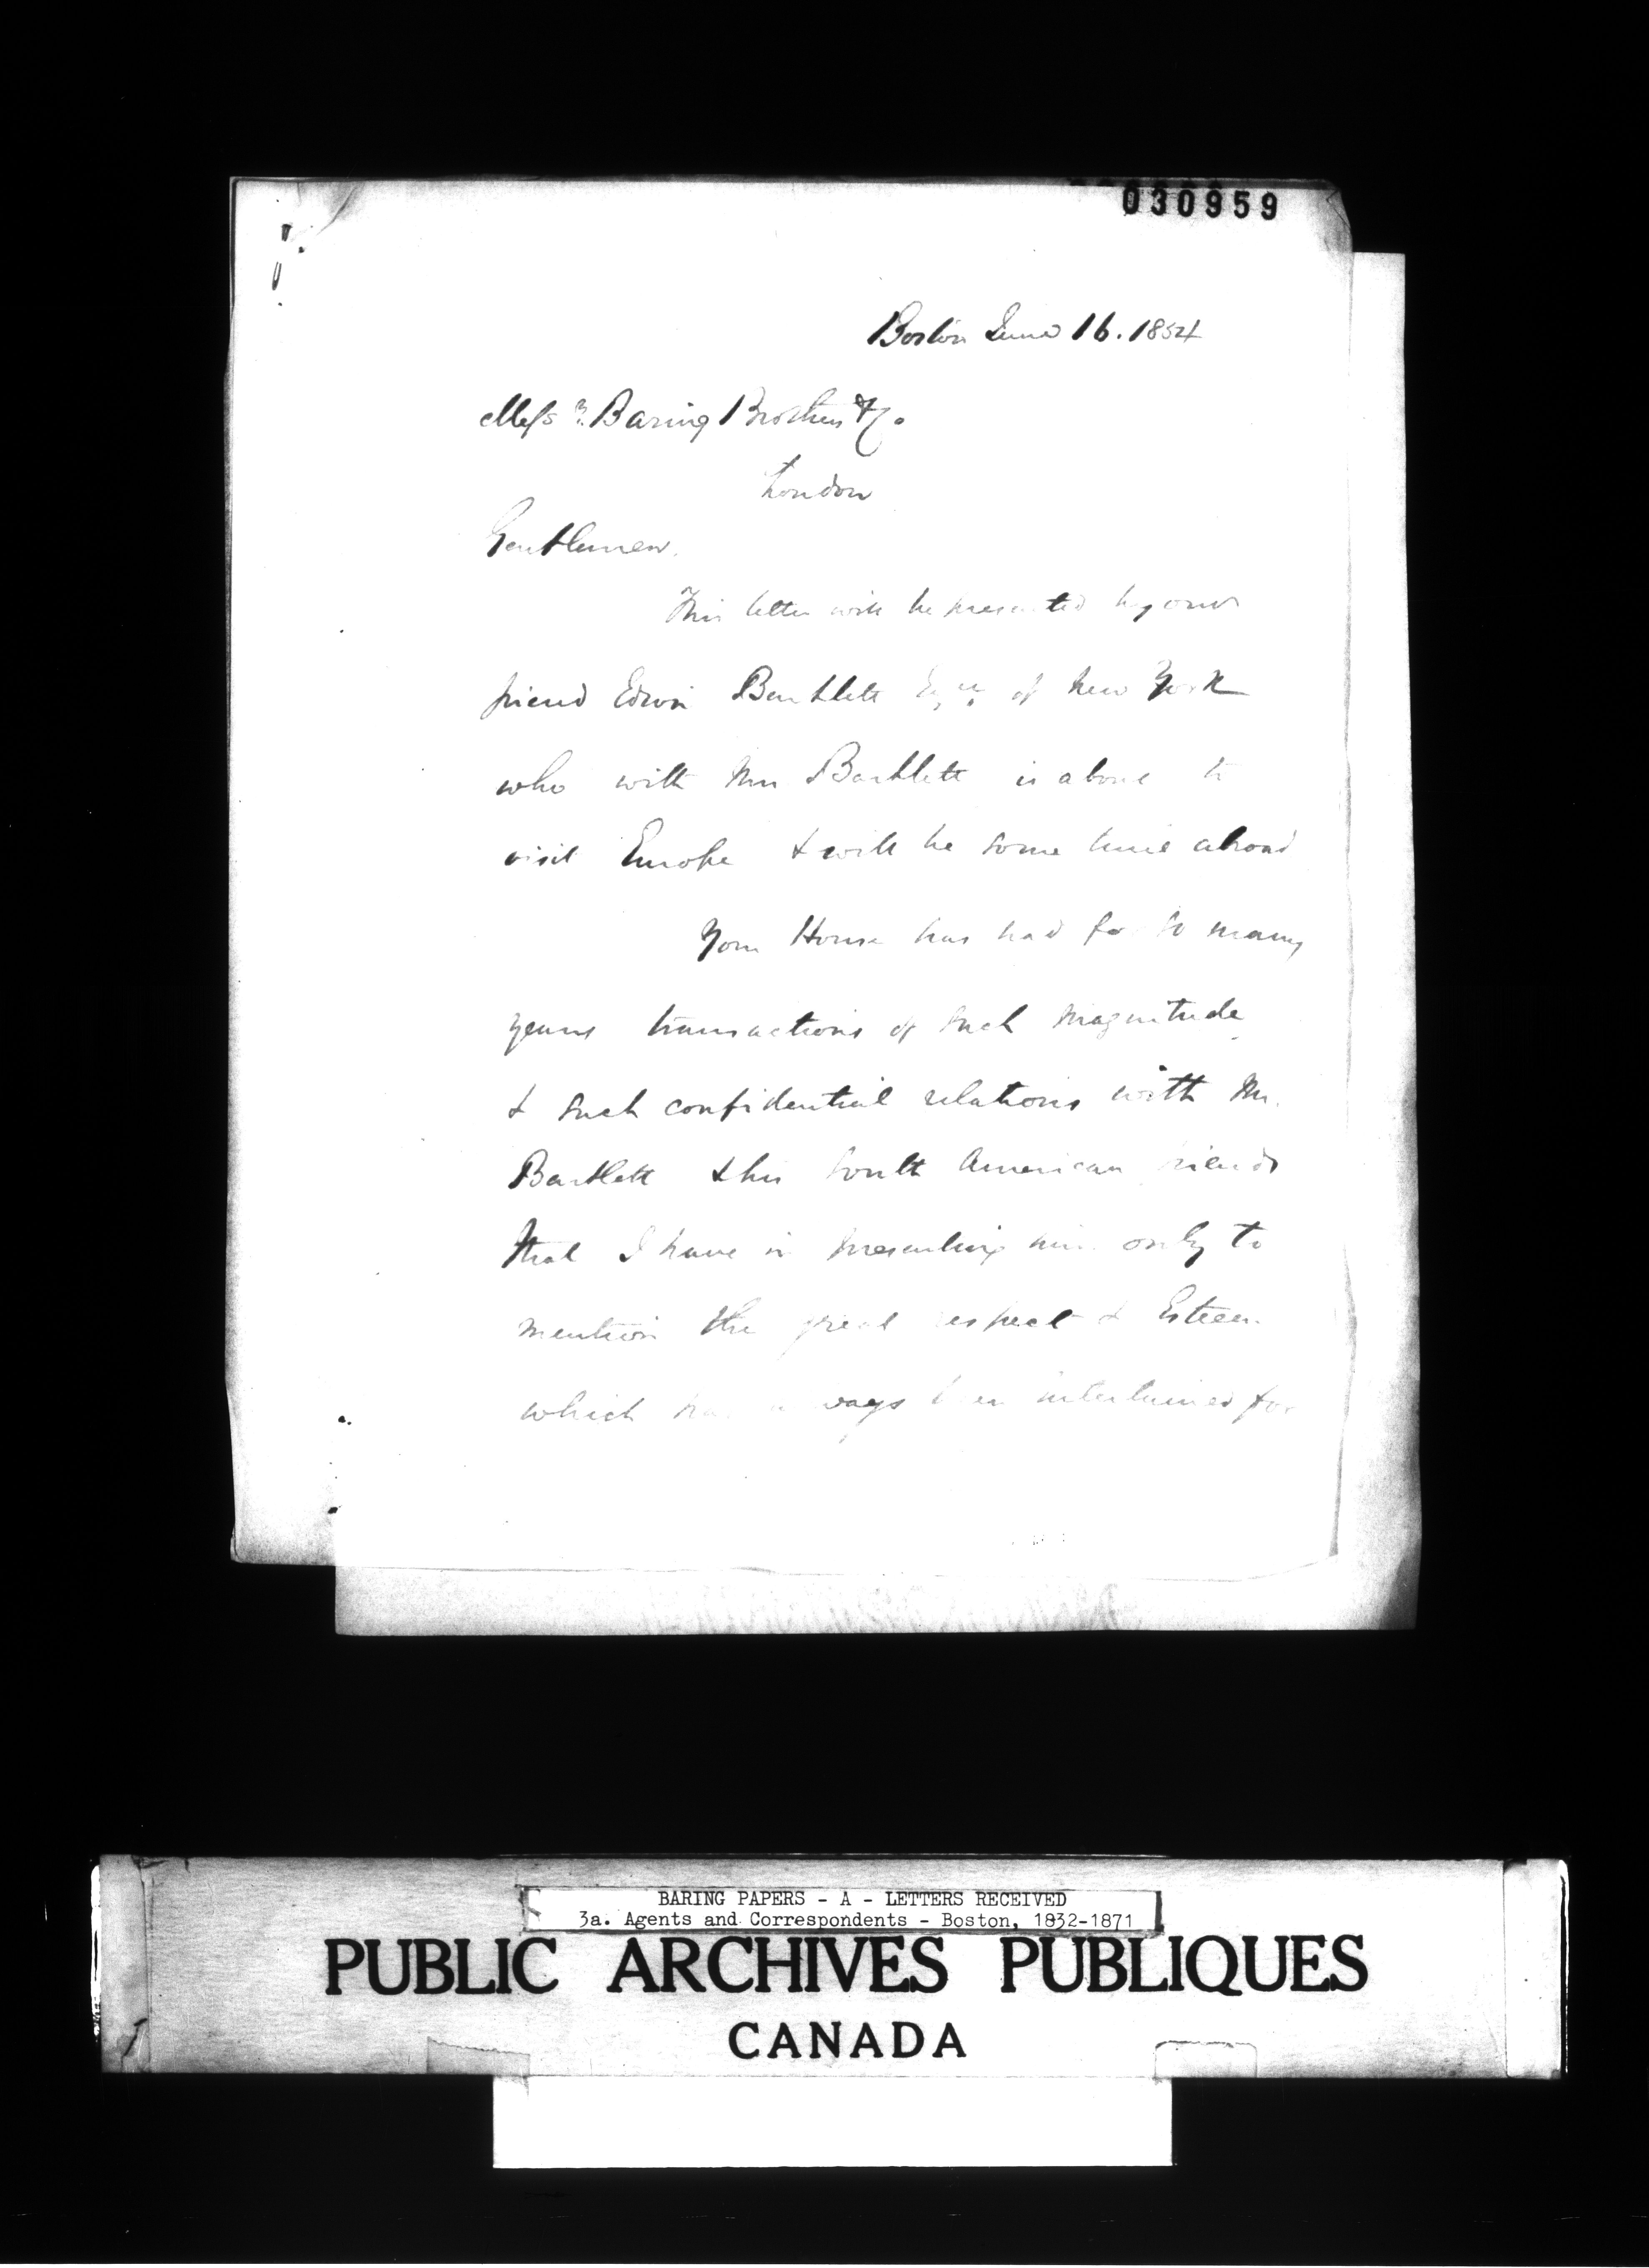 030959
Boston June 16. 1854
Mess rs. Baring Brothers & Co.
London
Gentlemen.
This letter will be presented by our
friend Edwin Bartlett Esqr. of New York
who with Mrs Bartlett is about to
visit Europe & will be some time abroad
Your House has had for so many
years transactions of such magnitude
& such confidential relations with Mr.
Bartlett & his South American friends
that I have in presenting him only to
mention the great respect & Esteem
which has always been entertained for
BARING PAPERS - A - LETTERS RECEIVED
3a. Agents and Correspondents - Boston, 1832-1871
PUBLIC ARCHIVES PUBLIQUES
CANADA